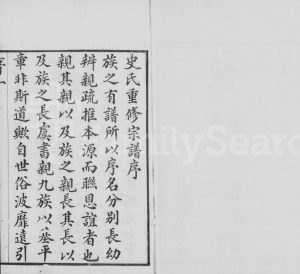 史氏重修宗譜序
族之有譜所以序名分別長幼
辨親疏推本源而聯恩誼者也
親其親以及族之親長其長以
及族之長虞書親九族以基平
章非斯道歟自世俗波靡遠引
FamilySearch